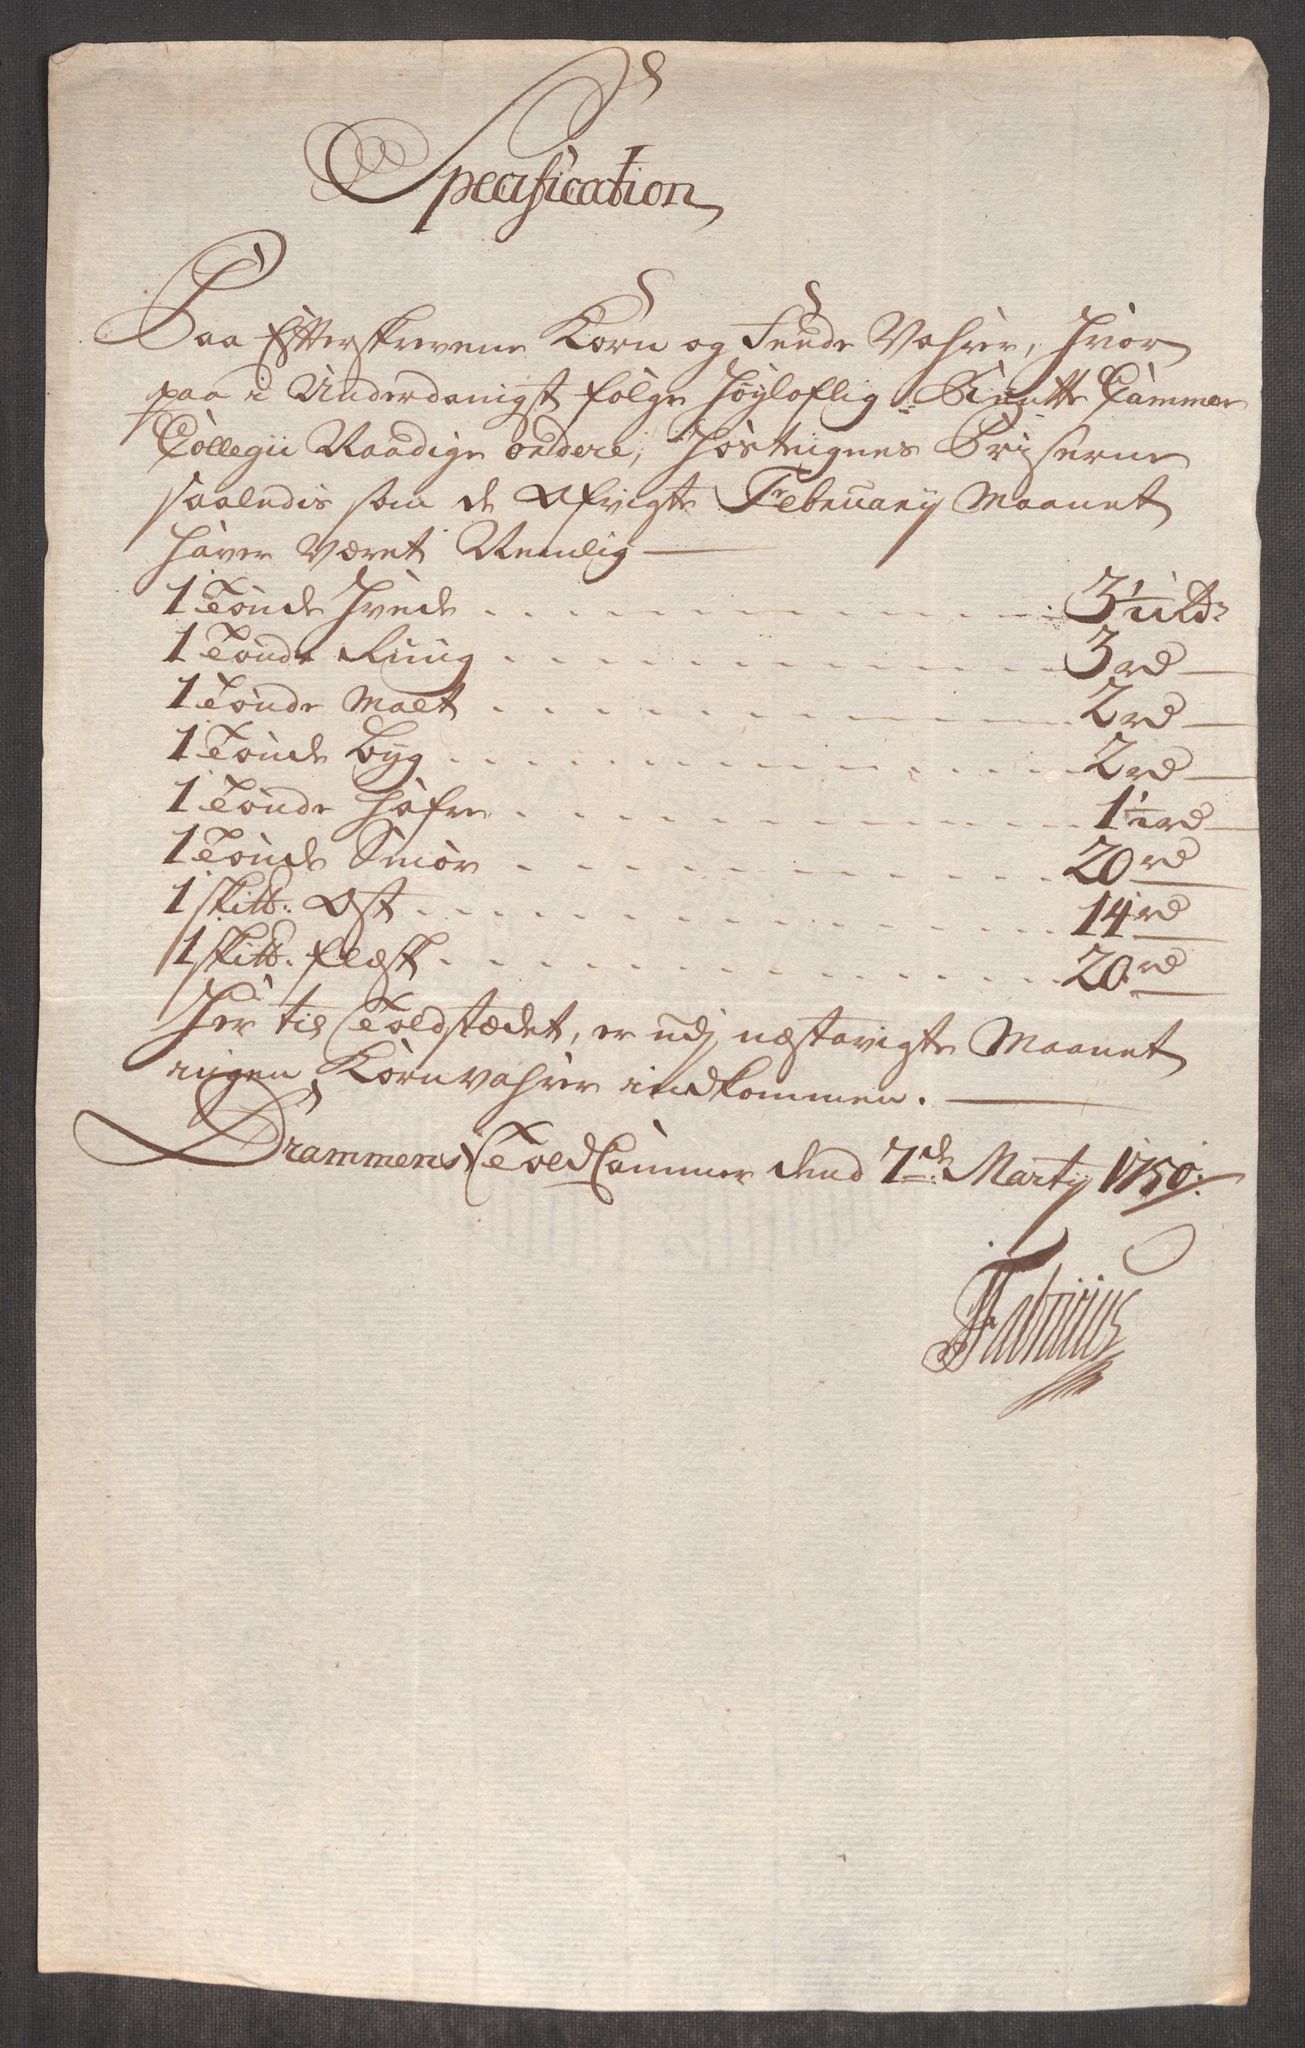 Specification
Paa Efterskrevene Korn og Feede Vahrer, hvor
paa i Underdanigst følge Høyloflig Rente Cammer
Collegii Naadige ordere, hostegnes Priserne
saaledis som de Afvigte February Maanet
haver Været Nemlig
1 Tønde Hvede 3 1/2 Rd
1 Tønde Rüug 3 rd
1 Tønde Malt 2 rd
1 Tønde Byg 2 rd
1 Tønde Hafre 1 1/2 rd
1 Tønde Smør 20 rd
1 skit℔. Ost 14 rd
1 skit℔. Flæsk 20 rd
Her til Toldstædet, er udj næstavigte Maanet
ingen Kornvahrer indkommen.
Drammens Told Cammer dend 7de Marty 1750.
Fabritius